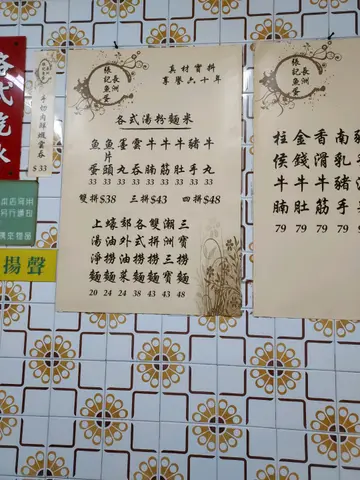 手切肉鮮蝦雲吞
$33
揚聲
長洲
張記魚蛋
真材實料
享譽六十年
各式湯粉麵米
魚蛋 33
魚片頭 33
墨丸 33
雲吞 33
牛腩 33
牛筋 33
牛肚 33
豬手 33
牛丸 33
雙拼$38 三拼$43 四拼$48
上湯淨麵 20
蠔油撈麵 24
郊外油菜 24
各式撈麵 38
雙拼撈麵 43
三寶撈麵 48
長洲
張記魚蛋
柱侯牛腩 79
金錢牛肚 79
香滑牛筋 79
南乳豬手 79